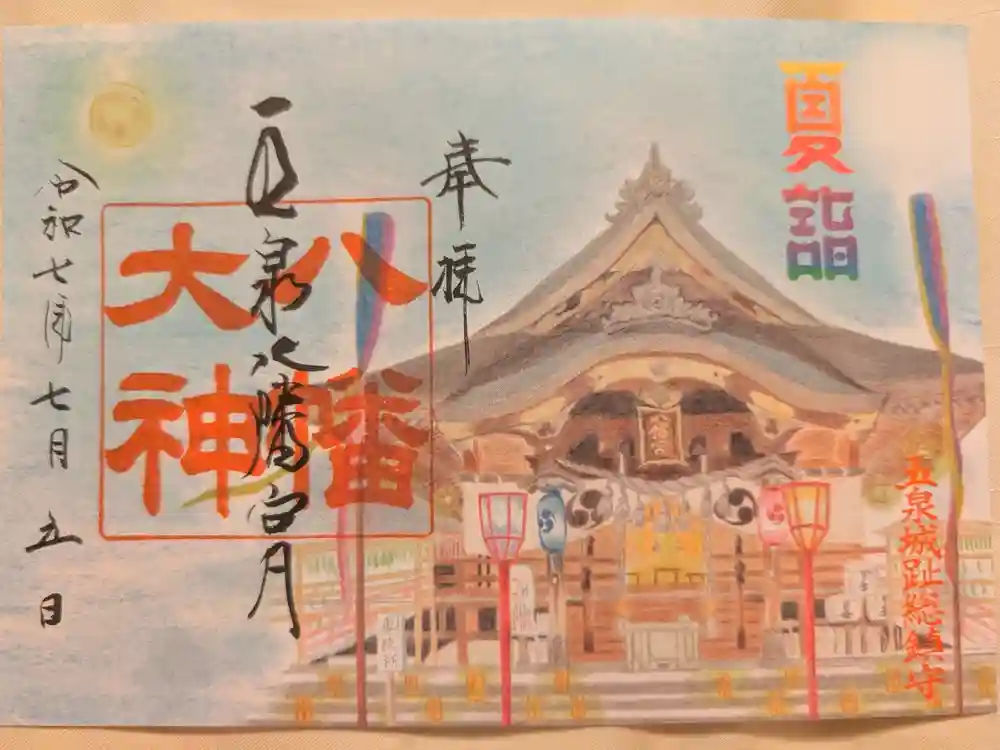 夏詣
五泉城趾総鎮守
奉拝
五泉八幡宮
八幡
大神
令和七年七月五日